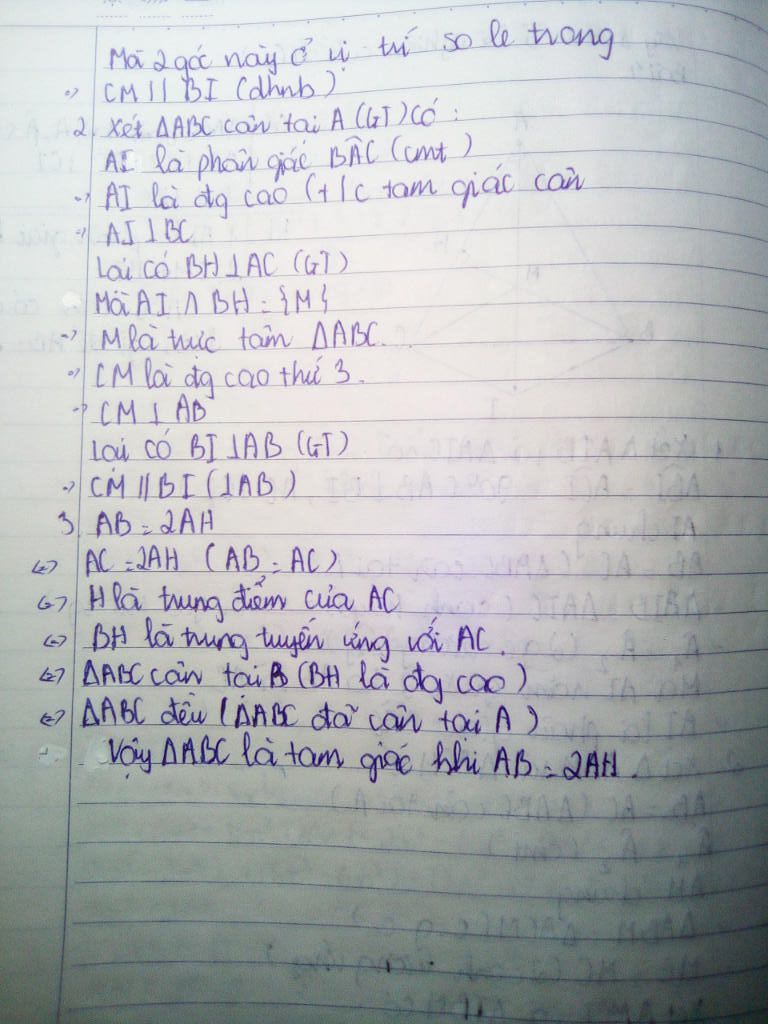 Mà 2 góc này ở vị trí so le trong
=> CM // BI (dhnb)
2. Xét ΔABC cân tại A (GT) có :
AI là phân giác BÂC (cmt)
=> AI là đg cao (t/c tam giác cân
=> AI ⊥ BC
Lại có BH ⊥ AC (GT)
Mà AI ∩ BH = {M}
=> M là trực tâm ΔABC.
=> CM là đg cao thứ 3.
=> CM ⊥ AB
Lại có BI ⊥ AB (GT)
=> CM // BI (⊥AB)
3. AB = 2AH
<=> AC = 2AH (AB = AC)
<=> H là trung điểm của AC
<=> BH là trung tuyến ứng với AC.
<=> ΔABC cân tại B (BH là đg cao)
<=> ΔABC đều (ΔABC đã cân tại A)
Vậy ΔABC là tam giác khi AB = 2AH.